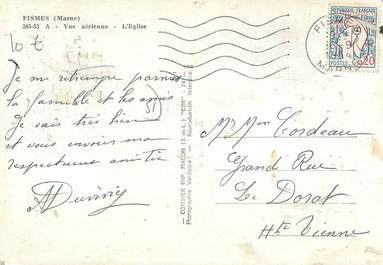 FISMES (Marne)
385-53 A - Vue aérienne - L'Eglise
10 €
Je me retrempe parmi
la famille et les amis.
Je vais très bien
et vous envoie ma
respectueuse amitié
CIM
COMBIER IMP. MACON
Photographie Véritable - Reproduction Interdite
REPUBLIQUE FRANCAISE
POSTES
0,20
FISMES
MARNE
Mr Mme Cordeau
Grand Rue
Le Dorat
Hte Vienne